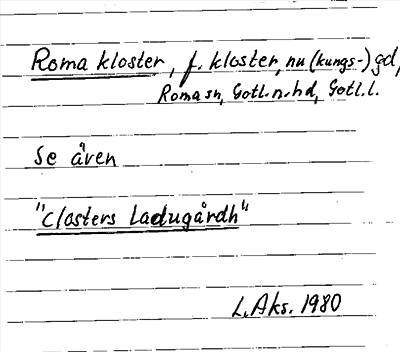 Roma kloster, f. kloster, nu (kungs-) gd,
Roma sn, Gotl. n. hd, Gotl. l.
Se även
"Closters Ladugårdh"
L. Aks. 1980